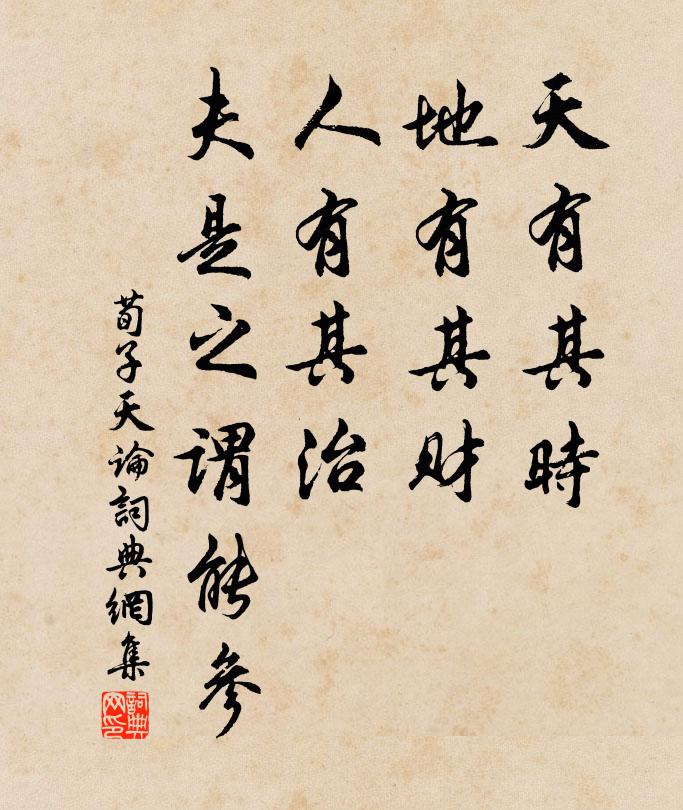 天有其時
地有其財
人有其治
夫是之謂能參
荀子天論詞典網集
詞典网印